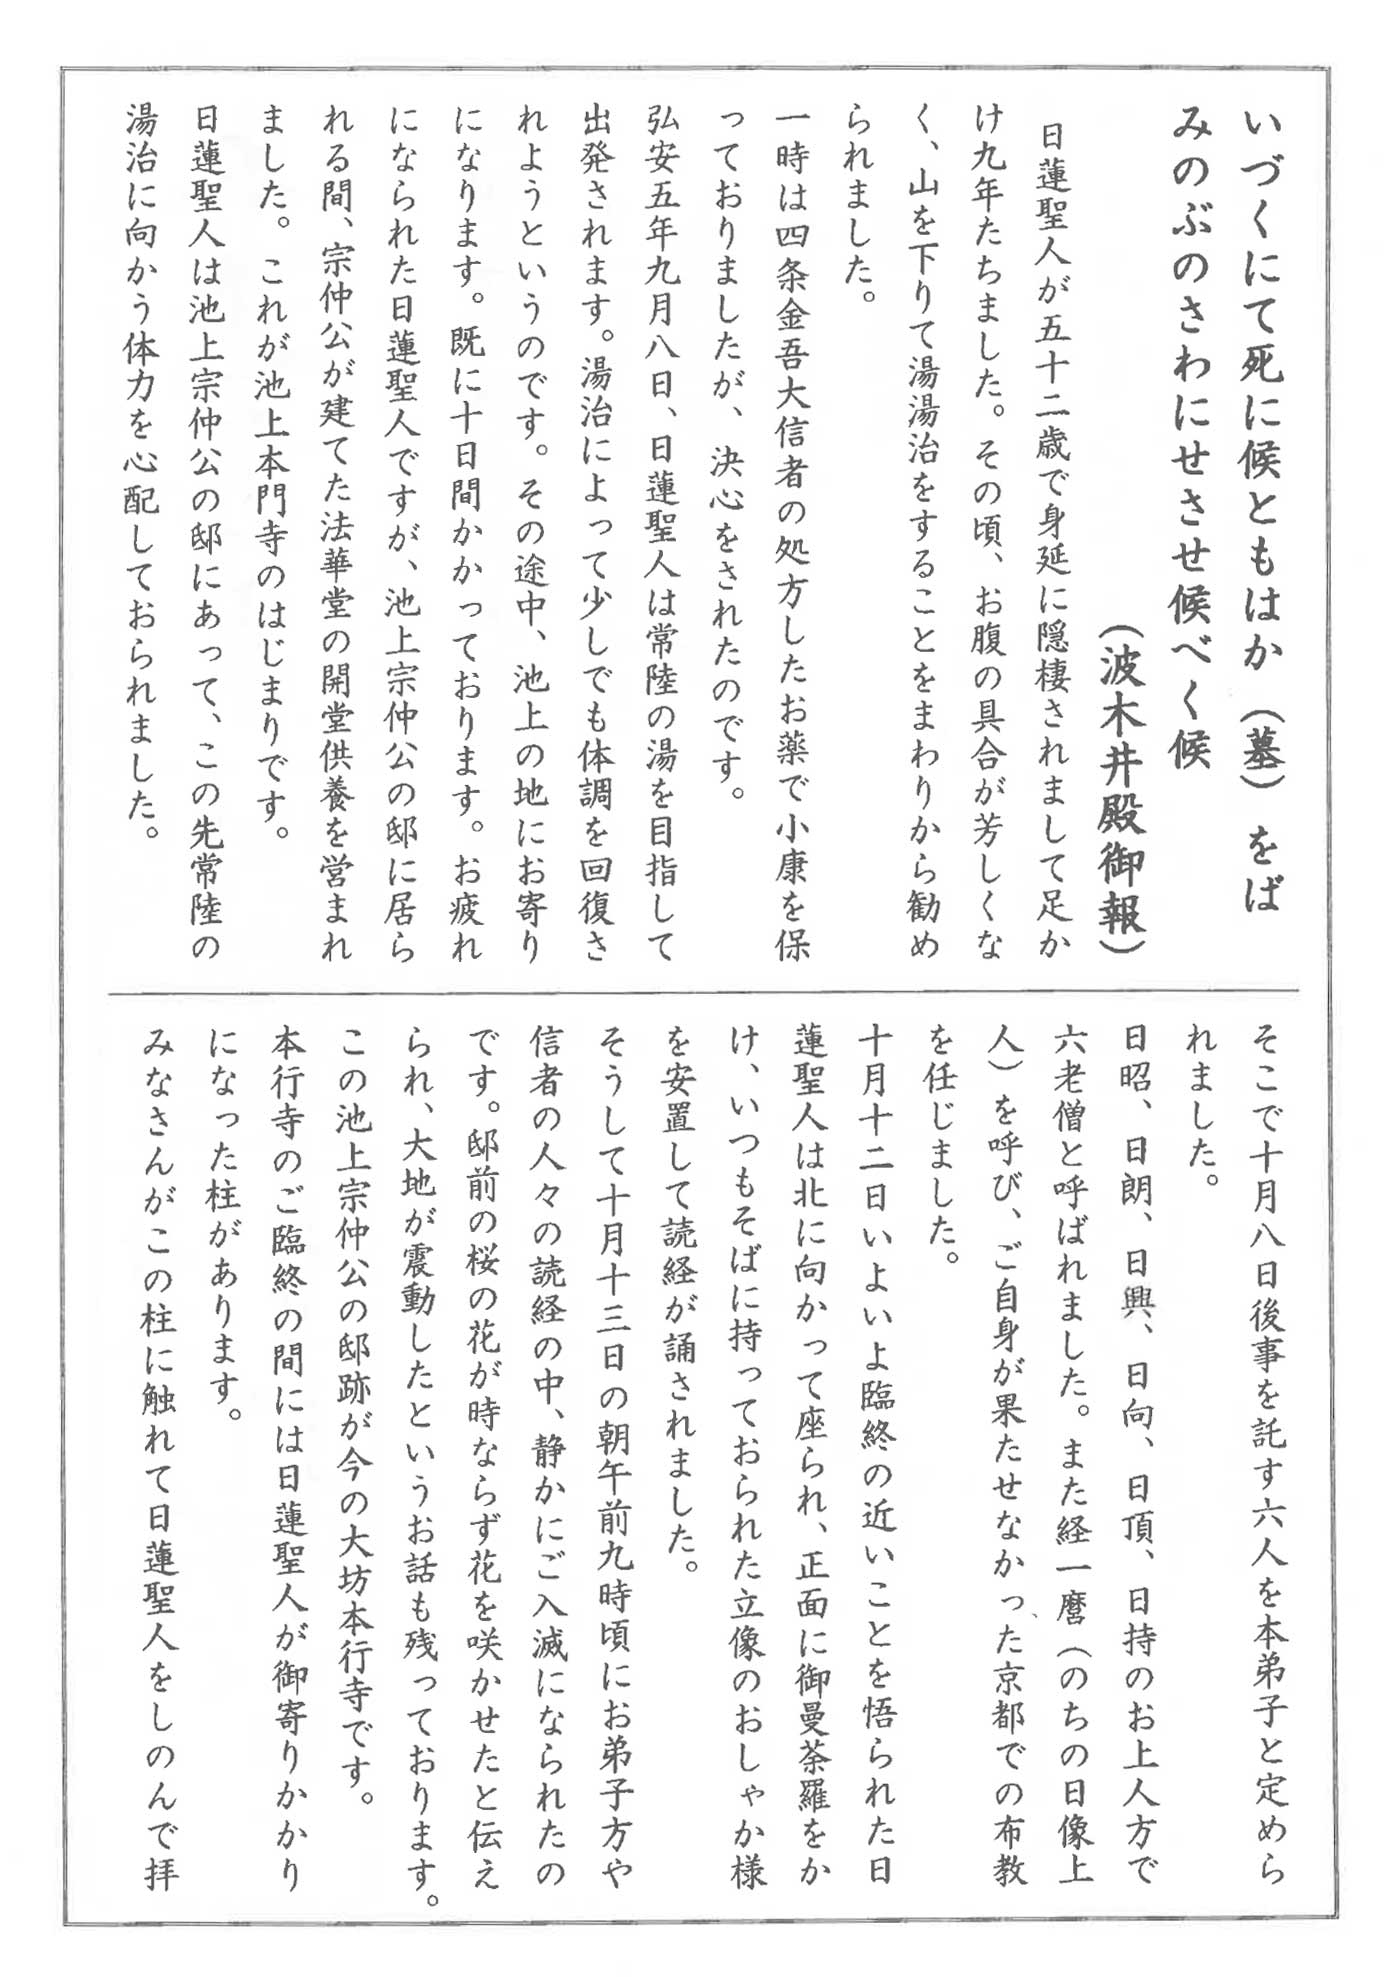 いづくにて死に候ともはか（墓）をば
みのぶのさわにせさせ候べく候
（波木井殿御報）
日蓮聖人が五十二歳で身延に隠棲されまして足か
け九年たちました。その頃、お腹の具合が芳しくな
く、山を下りて湯湯治をすることをまわりから勧め
られました。
一時は四条金吾大信者の処方したお薬で小康を保
っておりましたが、決心をされたのです。
弘安五年九月八日、日蓮聖人は常陸の湯を目指して
出発されます。湯治によって少しでも体調を回復さ
れようというのです。その途中、池上の地にお寄り
になります。既に十日間かかっております。お疲れ
になられた日蓮聖人ですが、池上宗仲公の邸に居ら
れる間、宗仲公が建てた法華堂の開堂供養を営まれ
ました。これが池上本門寺のはじまりです。
日蓮聖人は池上宗仲公の邸にあって、この先常陸の
湯治に向かう体力を心配しておられました。
そこで十月八日後事を託す六人を本弟子と定めら
れました。
日昭、日朗、日興、日向、日頂、日持のお上人方で
六老僧と呼ばれました。また経一麿（のちの日像上
人）を呼び、ご自身が果たせなかった京都での布教
を任じました。
十月十二日いよいよ臨終の近いことを悟られた日
蓮聖人は北に向かって座られ、正面に御曼荼羅をか
け、いつもそばに持っておられた立像のおしゃか様
を安置して読経が誦されました。
そうして十月十三日の朝午前九時頃にお弟子方や
信者の人々の読経の中、静かにご入滅になられたの
です。邸前の桜の花が時ならず花を咲かせたと伝え
られ、大地が震動したというお話も残っております。
この池上宗仲公の邸跡が今の大坊本行寺です。
本行寺のご臨終の間には日蓮聖人が御寄りかかり
になった柱があります。
みなさんがこの柱に触れて日蓮聖人をしのんで拝